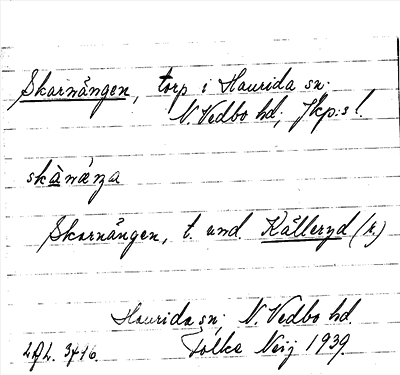 Skarnängen, torp i Haurida sn.
N. Vedbo hd; Jkp:s l.
skànæŋa
Skarnängen, t. und. Källeryd (r.)
Haurida sn; N. Vedbo hd.
LAL. 3416. Tolka Neij 1939.